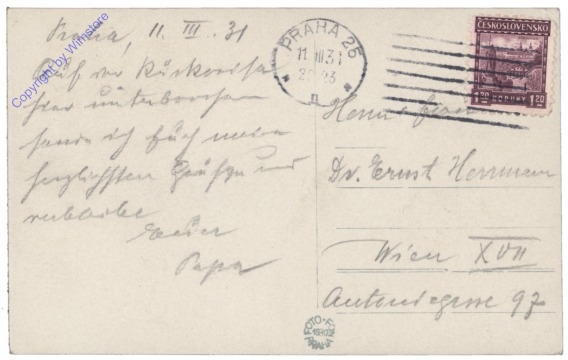 Praha, 11. III. 31
Auf der Rückreise
hier unterbrochen
sende ich Euch meine
herzlichsten Grüße und
verbleibe
Euer
Papa
Copyright by Winstore
PRAHA 25
11. III 31
ČESKOSLOVENSKO
1.20 KORUNY 1.20
Herrn
Dr. Ernst Herrmann
Wien XVII
Antonigasse 97
FOTO-FO
PRAHA